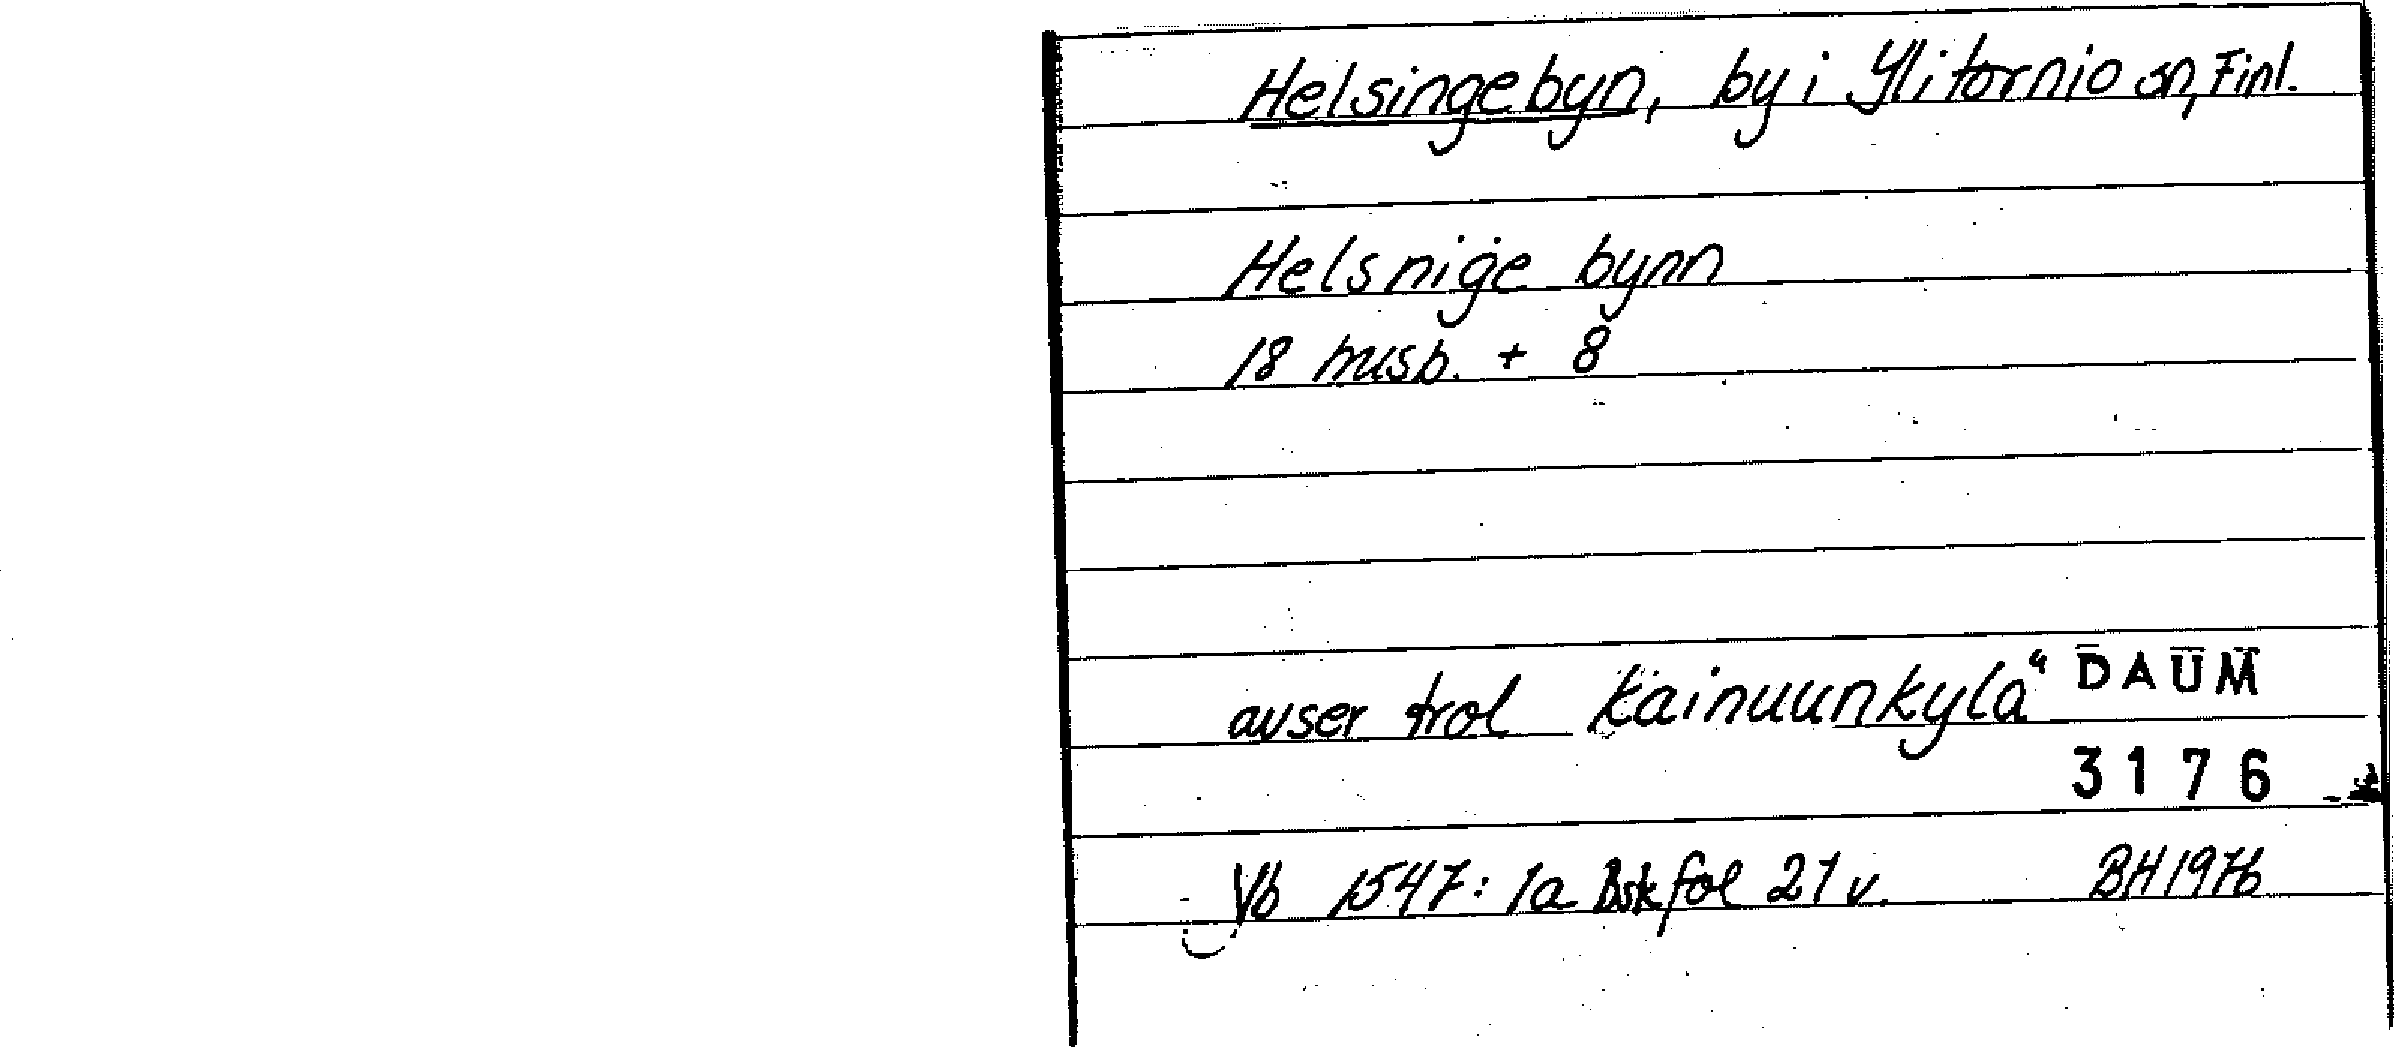 Helsingebyn, by i Ylitornio sn, Finl.
Helsnige bynn
18 husb. + 8
avser trol Kainuunkylä DAUM
3176
Vb 1547: 1a Bskfol 21 v. BH 1976